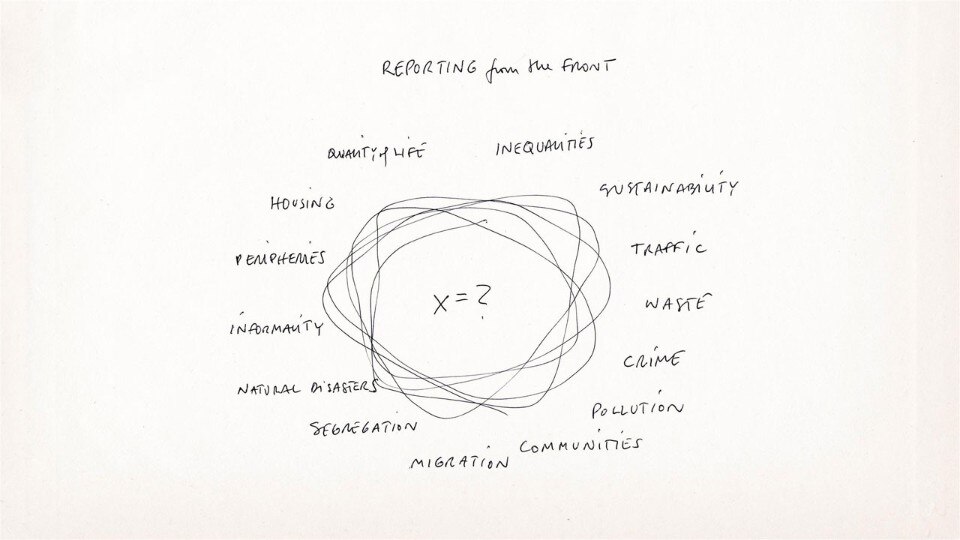 REPORTING from the FRONT
QUALITY of LIFE
INEQUALITIES
HOUSING
SUSTAINABILITY
PERIPHERIES
TRAFFIC
X = ?
WASTE
INFORMALITY
CRIME
NATURAL DISASTERS
POLLUTION
SEGREGATION
COMMUNITIES
MIGRATION